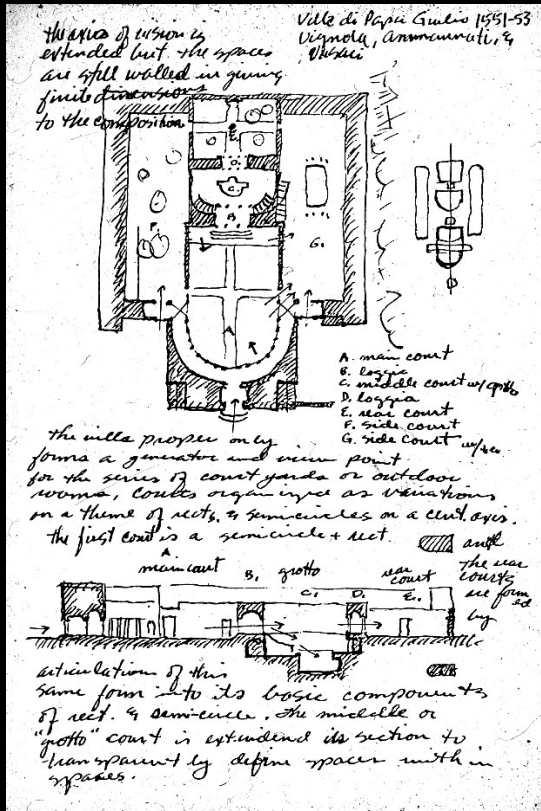 Villa di Papa Giulio 1551-53
Vignola, Ammannati, &
Vasari
the axis of vision is
extended but the spaces
are still walled in giving
finite dimensions
to the composition
D.
C.
B.
A
F.
G.
A. main court
B. loggia
C. middle court w/ grotto
D. loggia
E. rear court
F. side court
G. side court
the villa proper only
forms a generator and view point
for the series of court yards or outdoor
rooms, courts organized as variations
on a theme of rects. & semicircles on a cent. axis.
the first court is a semicircle + rect.
and
the rear
courts
are form
ed
by
A
main court
B.
grotto
C.
D.
rear
court
E.
articulation of this
same form into its basic components
of rect. & semi-circle. the middle or
"grotto" court is extendend its section to
transparently define spaces within
spaces.